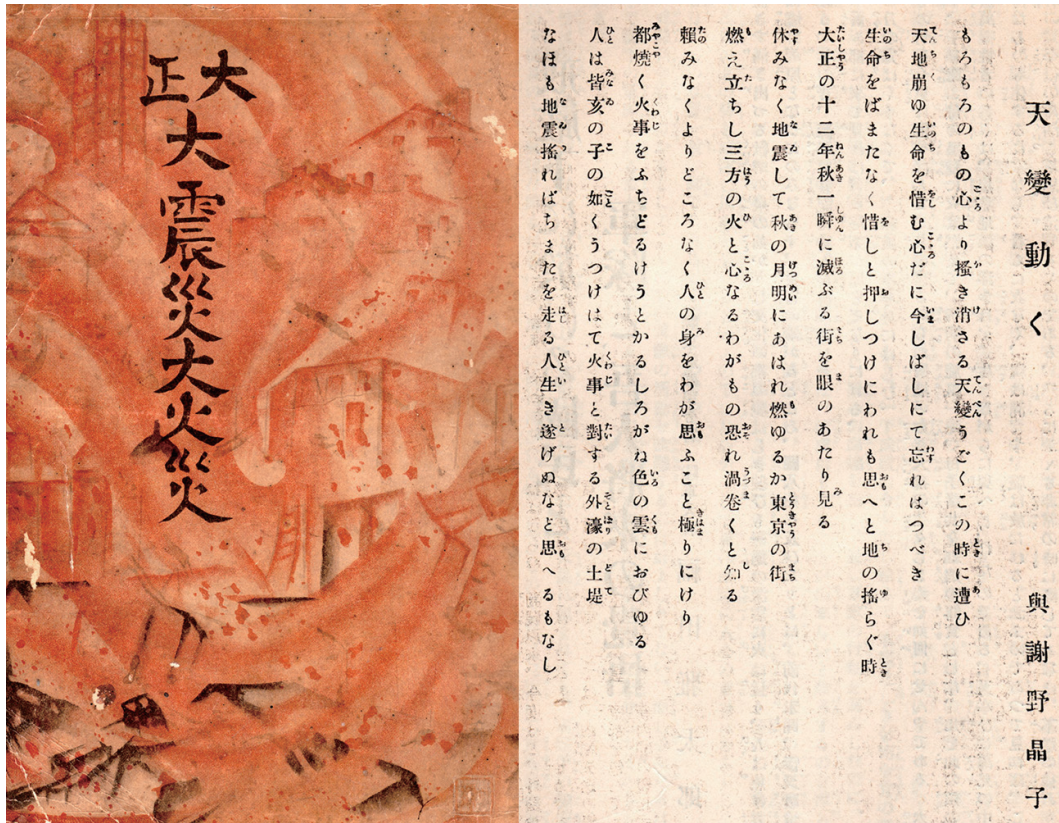 大正
大震災大火災
天變動く 與謝野晶子
もろもろのもの心より搔き消さる天變うごくこの時に遭ひ
天地崩ゆ生命を惜む心だに今しばしにて忘れはつべき
生命をばまたなく惜しと押しつけにわれも思へと地の搖らぐ時
大正の十二年秋一瞬に滅ぶる街を眼のあたり見る
休みなく地震して秋の月明にあはれ燃ゆるか東京の街
燃え立ちし三方の火と心なるわがもの恐れ渦卷くと知る
賴みなくよりどころなく人の身をわが思ふこと極りにけり
都燒く火事をふちどるけうとかるしろがね色の雲におびゆる
人は皆亥の子の如くうつけはて火事と對する外濠の土堤
なほも地震搖ればちまたを走る人生き遂げぬなど思へるもなし